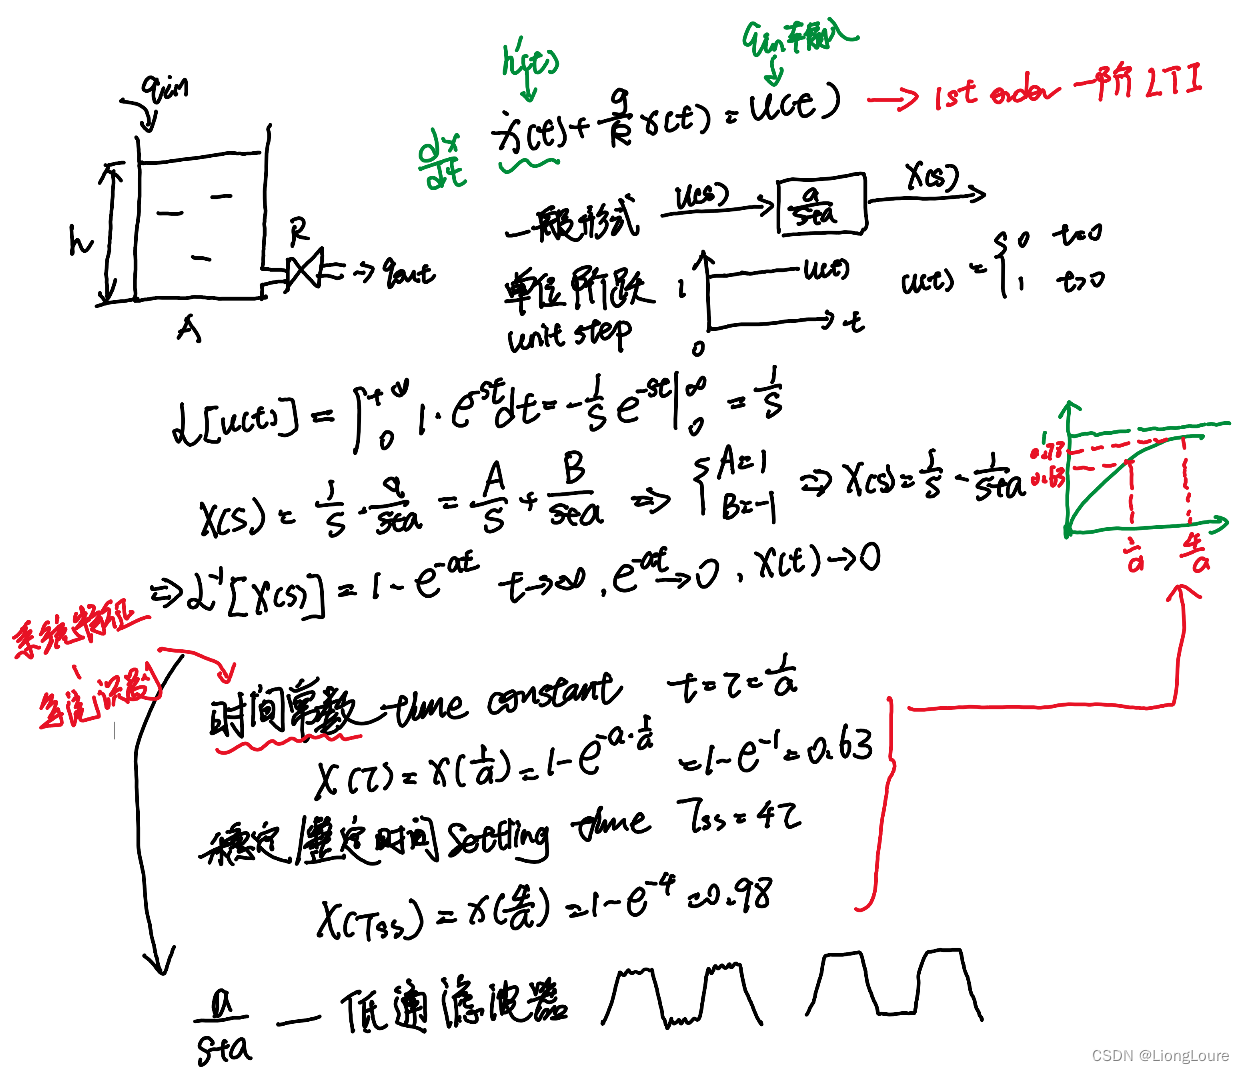 qin
h
R
→ qout
A
h'(t)
qin 车输入
dx/dt
ẋ(t) + g/R x(t) = u(t) → 1st order 一阶 LTI
一般形式 U(s) → a/(s+a) → X(s)
单位阶跃 1 u(t)
unit step
0 t
u(t) = { 0 t=0
1 t>0
L[u(t)] = ∫₀^{+∞} 1·e^{-st}dt = -1/s e^{-st}|₀^∞ = 1/s
X(s) = 1/s · a/(s+a) = A/s + B/(s+a) ⇒ { A=1 B=-1 ⇒ X(s) = 1/s - 1/(s+a)
1
0.98
0.63
1/a 4/a
⇒ L⁻¹[X(s)] = 1 - e^{-at} t→∞, e^{-at}→0, x(t)→0
系统特征
系统识别
时间常数 time constant t=τ=1/a
x(τ) = x(1/a) = 1-e^{-a·1/a} = 1-e^{-1} = 0.63
稳定/整定时间 Settling time Tss=4τ
x(Tss) = x(4/a) = 1-e^{-4} = 0.98
a/(s+a) — 低通滤波器
CSDN @LiongLoure